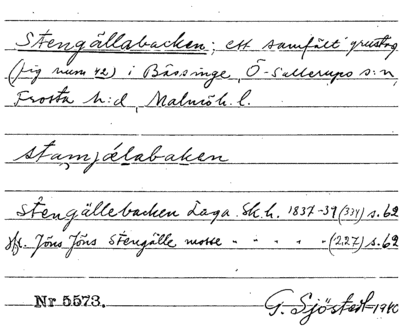 Stengällabacken; ett samfällt grustag
(fig num 42) i Bässinge, Ö-Sallerups s:n,
Frosta h:d, Malmöh. l.
stamjælabaken
Stengällebacken Laga Sk.h. 1837-39 (334) s. 62
jfr. Jöns Jöns Stengälle mosse " " " " (227) s. 62
Nr 5573.
G. Sjöstedt 1940